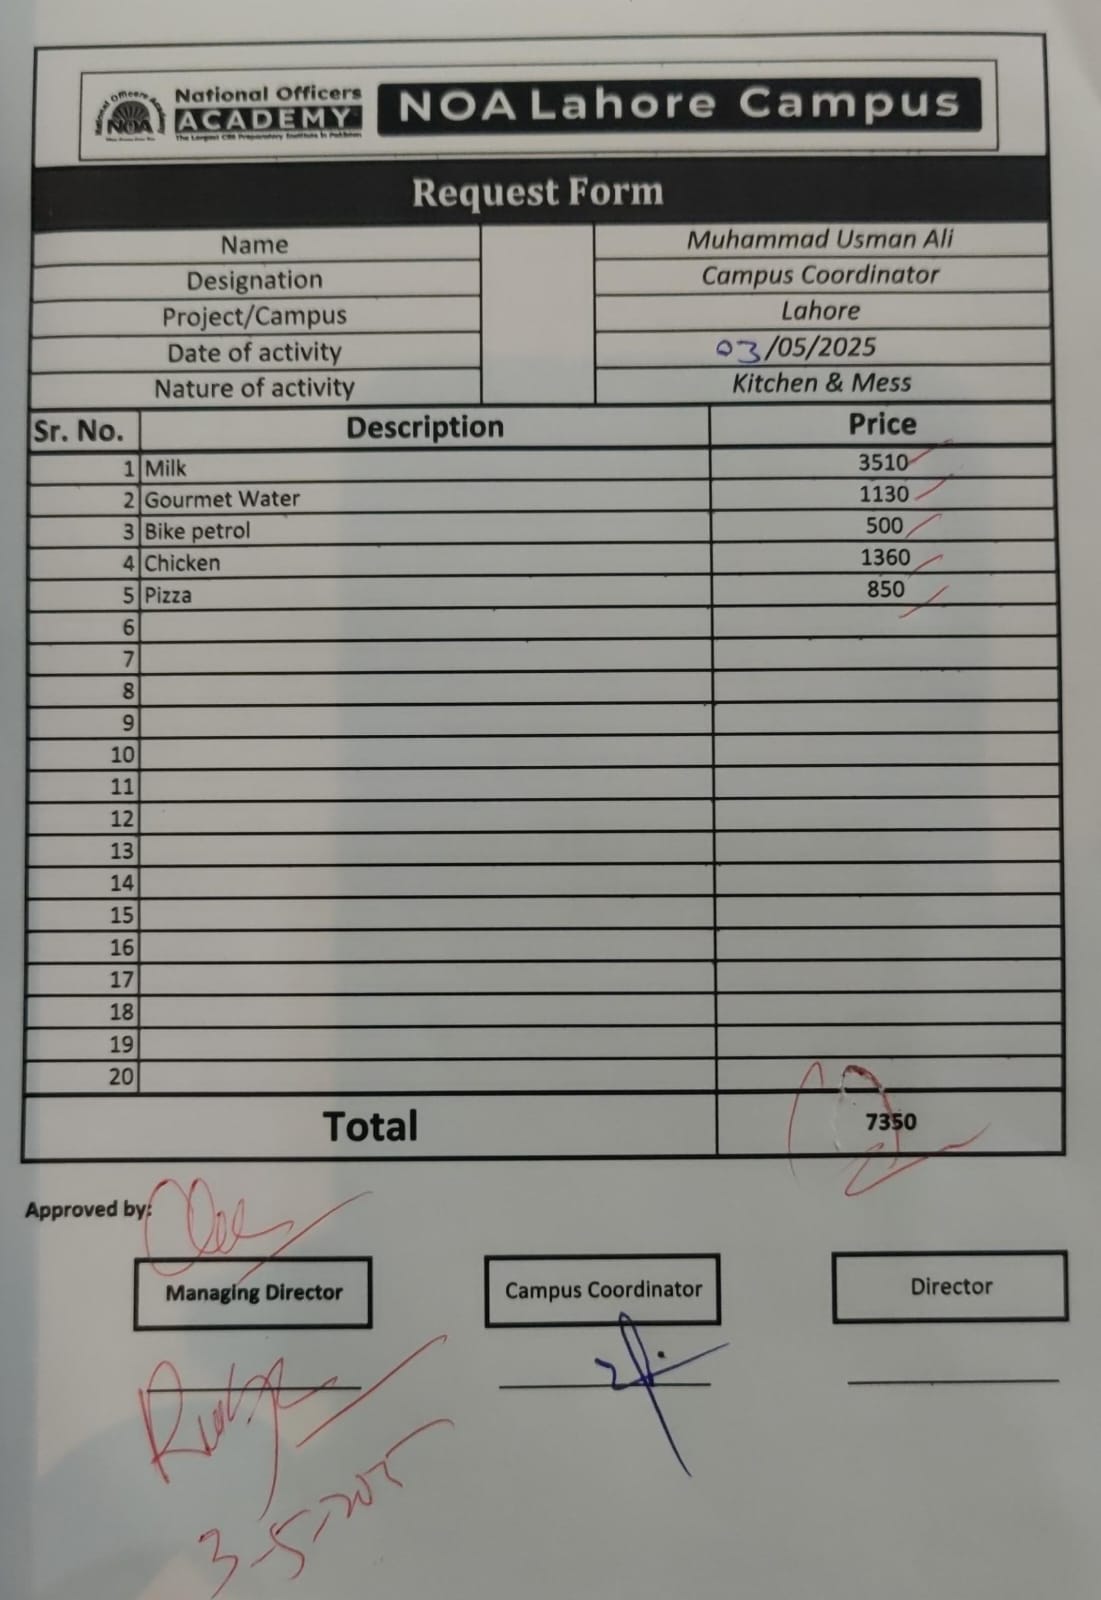 National Officers
ACADEMY
The Largest CSS Preparatory Institute in Pakistan
National Officers Academy
NOA
NOA Lahore Campus
Request Form
Name Muhammad Usman Ali
Designation Campus Coordinator
Project/Campus Lahore
Date of activity 03/05/2025
Nature of activity Kitchen & Mess
Sr. No. Description Price
1 Milk 3510
2 Gourmet Water 1130
3 Bike petrol 500
4 Chicken 1360
5 Pizza 850
6
7
8
9
10
11
12
13
14
15
16
17
18
19
20
Total 7350
Approved by:
Managing Director Campus Coordinator Director